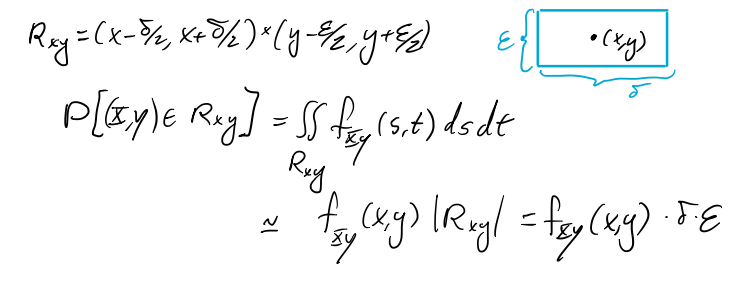 R_xy = (x-δ/2, x+δ/2) × (y-ε/2, y+ε/2)
ε { •(x,y)
δ
P[(X,Y) ∈ R_xy] = ∬_{R_xy} f_XY(s,t) ds dt
≃ f_XY(x,y) |R_xy| = f_XY(x,y) · δ · ε